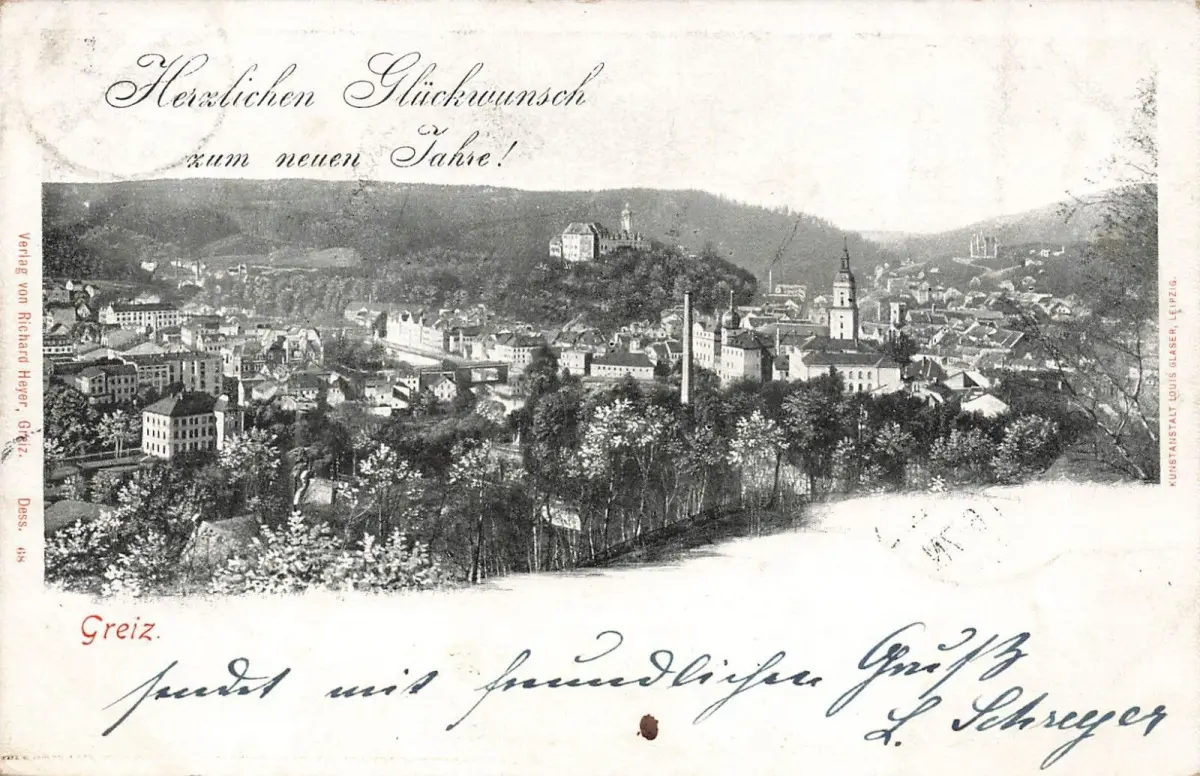 Herzlichen Glückwunsch
zum neuen Jahre!
Verlag von Richard Heyer, Greiz. Dess. 68
KUNSTANSTALT LOUIS GLASER, LEIPZIG.
Greiz.
sendet mit freundlichen Gruß
L. Schreyer